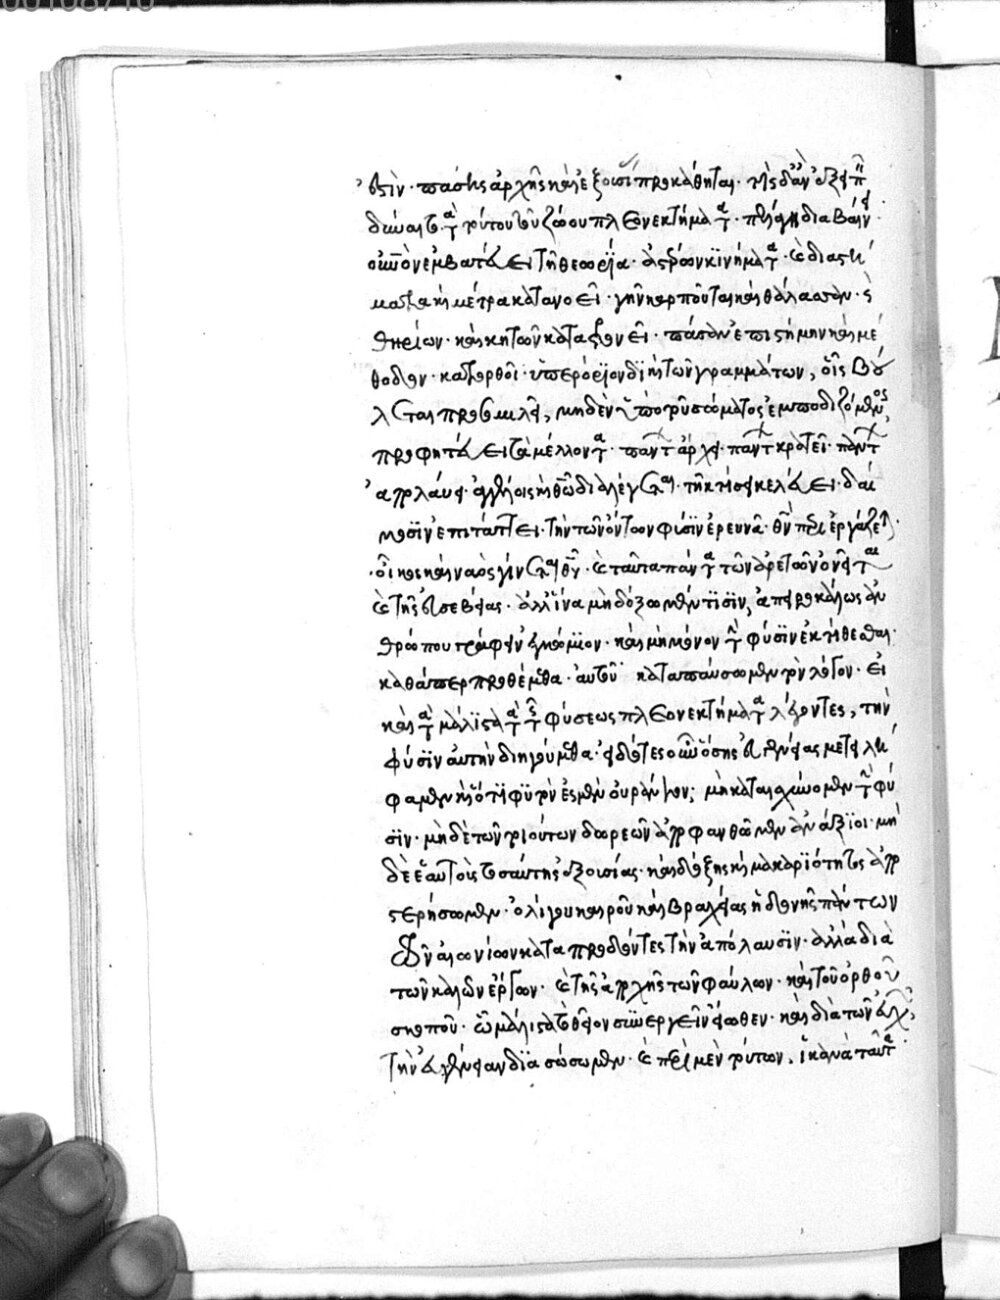 ἐστὶν· πάσης ἀρχῆς καὶ ἐξουσί προκάθηται· τίς δ' ἂν ἐξειπ
δύναιτο τὰ τούτου τοῦ ζώου πλεονεκτήματα· πελάγη διαβαίνει·
οὐνὸν ἐμβατεύει τῆ θεωρία· ἀστέρων κίνηματα· καὶ διαστή
ματα καὶ μέτρα κατανοεῖ· γῆν καρποῦται καὶ θάλασσαν· καὶ
θηρίων· καὶ κητῶν καταφρονεῖ· πᾶσαν ἐπιστήμην καὶ μέ
θοδον· κατορθοῖ· ὑπερόριον διὰ τῶν γραμμάτων, οἷς βού
λεται προσομιλεῖ, μηδὲν ὑπὸ τοῦ σώματος ἐμποδιζόμενος,
προφητεύει τὰ μέλλοντα· πάντ ἄρχει· πάντ κρατεῖ· πάντ
ἀπολαύει· ἀγγέλοις καὶ θεῶ διαλέγεται· τῆ κτίσει κελεύει· δαί
μοσιν ἐπιτάττει· τὴν τῶν ὄντων φύσιν ἐρευνᾶ· θν περιεργάζεται·
οἶκος καὶ ναὸς γίνεται θῦ· καὶ ταῦτα πάντα τῶν ἀρετῶν ὀνεῖται
καὶ τῆς εὐσεβείας· ἀλλ' ἵνα μὴ δόξωμέν τισιν, ἀπειροκάλως ἀν
θρώπου γράφειν ἐγκώμιον· καὶ μὴ μόνον τὴν φύσιν ἐκτίθεσθαι·
καθάπερ προθέμεθα· αὐτοῦ καταπαύσωμεν τὸν λόγον· εἰ
καὶ τὰ μάλιστα τὰ τῆς φύσεως πλεονεκτήματα λέγοντες, τὴν
φύσιν αὐτὴν διηγούμεθα· εἰδότες οὖν ὅσης εὐγενείας μετειλή
φαμεν καὶ ὅτι φυτόν ἐσμεν οὐράνιον· μὴ καταισχύνομεν τὴν φύ
σιν· μηδὲ τῶν τοιούτων δωρεῶν ἀποφανθῶμεν ἀνάξιοι· μὴ
δὲ ἑαυτοὺς τοσαύτης ἐξουσίας· καὶ δόξης καὶ μακαριότητος ἀπο
στερήσωμεν· ὀλίγου καιροῦ καὶ βραχείας ἡδονῆς πάντων
τῶν αἰωνίων καταπροδόντες τὴν ἀπόλαυσιν· ἀλλὰ διὰ
τῶν καλῶν ἔργων· καὶ τῆς ἀποχῆς τῶν φαύλων· καὶ τοῦ ὀρθοῦ
σκοποῦ· ὧ μάλιστα τὸ θεῖον συνεργεῖν εἴωθεν· καὶ διὰ τῶν εὐχ,
τὴν εὐγένειαν διασώσωμεν· καὶ περὶ μὲν τούτων, ἱκανὰ ταῦτα·